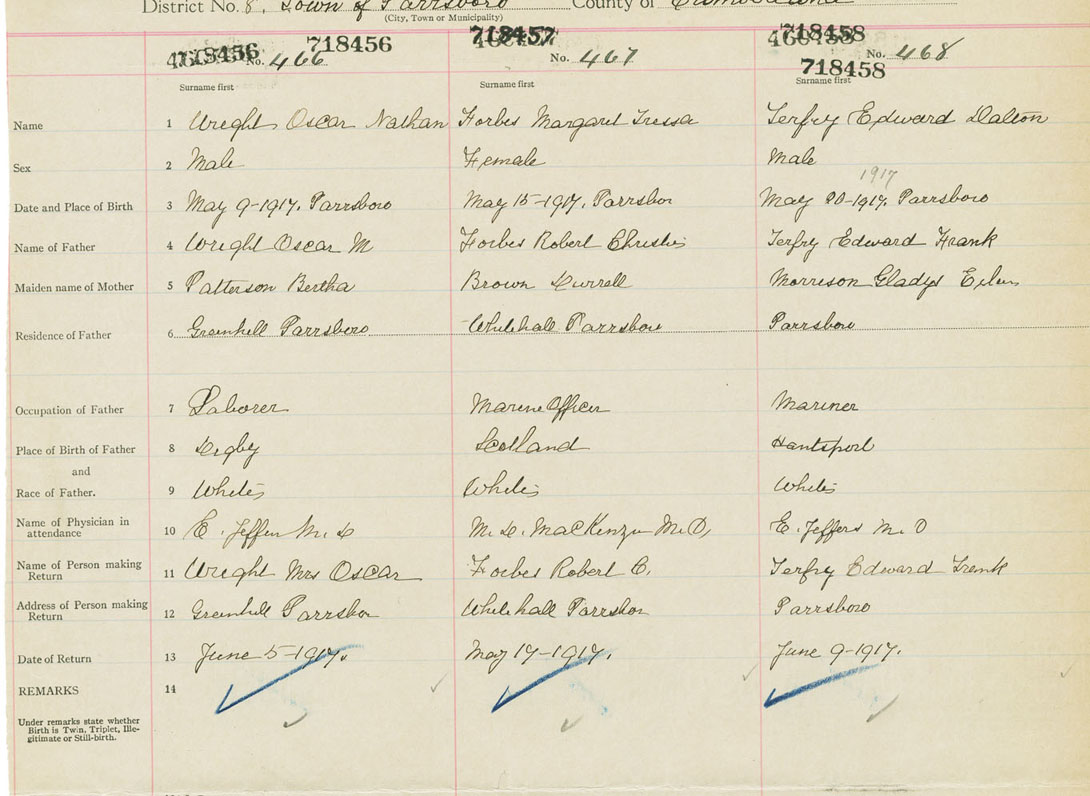 District No. 8, Town of Parrsboro County of Cumberland
(City, Town or Municipality)
718456 718456 No. 466
718457 No. 467
718458 No. 468
718458
Surname first Surname first Surname first
Name 1 Wright Oscar Nathan Forbes Margaret Tressa Terfry Edward Dalton
Sex 2 Male Female Male
1917
Date and Place of Birth 3 May 9-1917. Parrsboro May 15-1917. Parrsboro May 20-1917. Parrsboro
Name of Father 4 Wright Oscar M Forbes Robert Christie Terfry Edward Frank
Maiden name of Mother 5 Patterson Bertha Brown Morrison Gladys
Residence of Father 6 Greenhill Parrsboro Whitehall Parrsboro Parrsboro
Occupation of Father 7 Laborer Marine Officer Mariner
Place of Birth of Father 8 Digby Scotland Hantsport
and
Race of Father. 9 White White White
Name of Physician in
attendance 10 E. Jeffers M. D M. D. MacKenzie M.D. E. Jeffers M. D
Name of Person making
Return 11 Wright Mrs Oscar Forbes Robert C. Terfry Edward Frank
Address of Person making
Return 12 Greenhill Parrsboro Whitehall Parrsboro Parrsboro
Date of Return 13 June 5-1917. May 17-1917. June 9-1917.
REMARKS 14
Under remarks state whether
Birth is Twin, Triplet, Ille-
gitimate or Still-birth.